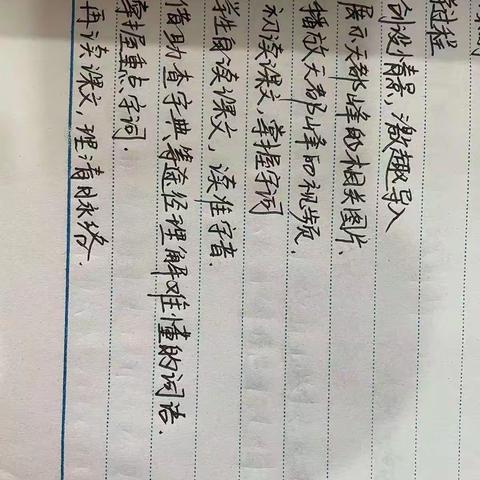 过程
创设情景，激趣导入
展示天都峰的相关图片、
播放天都峰的视频.
初读课文，掌握字词
学生自读课文，读准字音.
借助查字典等途径理解难懂的词语.
掌握重点字词
再读课文，理清脉络.